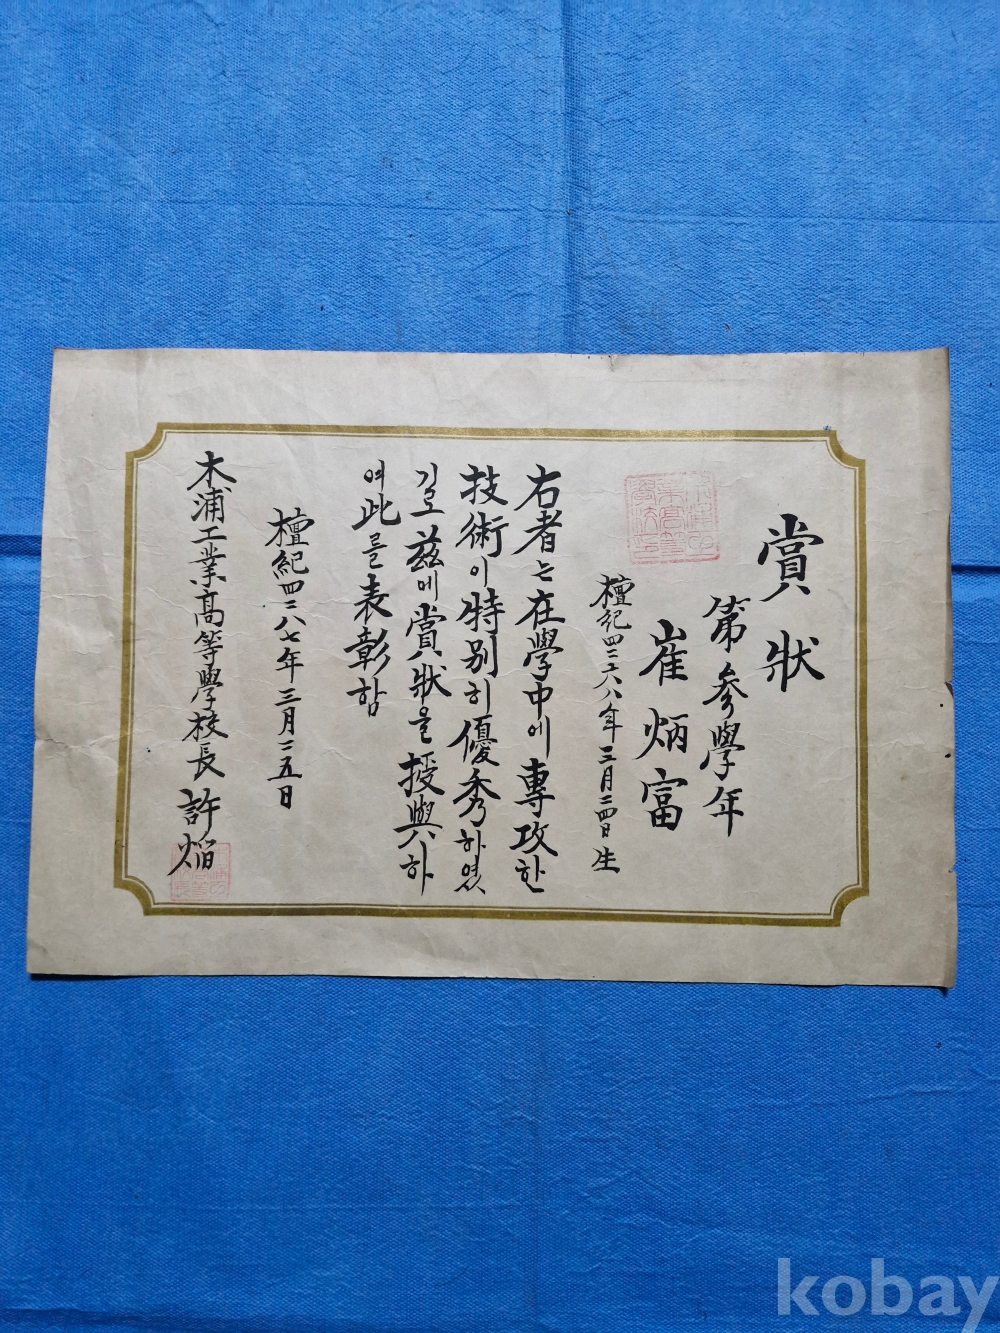 賞狀
第參學年
崔炳富
檀紀四二六八年三月二四日生
右者는在學中에專攻한
技術이特別히優秀하였
기로玆에賞狀을授與하
여此를表彰함
檀紀四二八七年三月二五日
木浦工業高等學校長 許焰
kobay